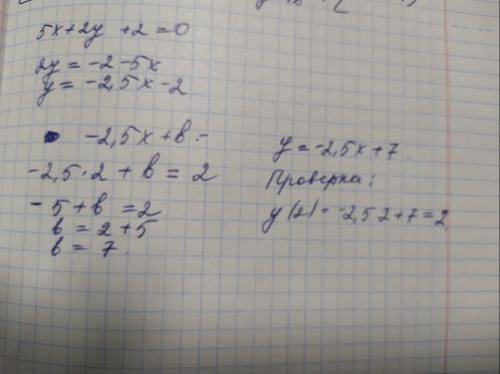 5x+2y +2=0
2y = -2-5x
y = -2,5x-2.
-2,5x+b -
-2,5·2 + b = 2
-5+b =2
b = 2+5
b = 7.
y = -2,5x+7.
Проверка:
y(2) = -2,5 2+7=2